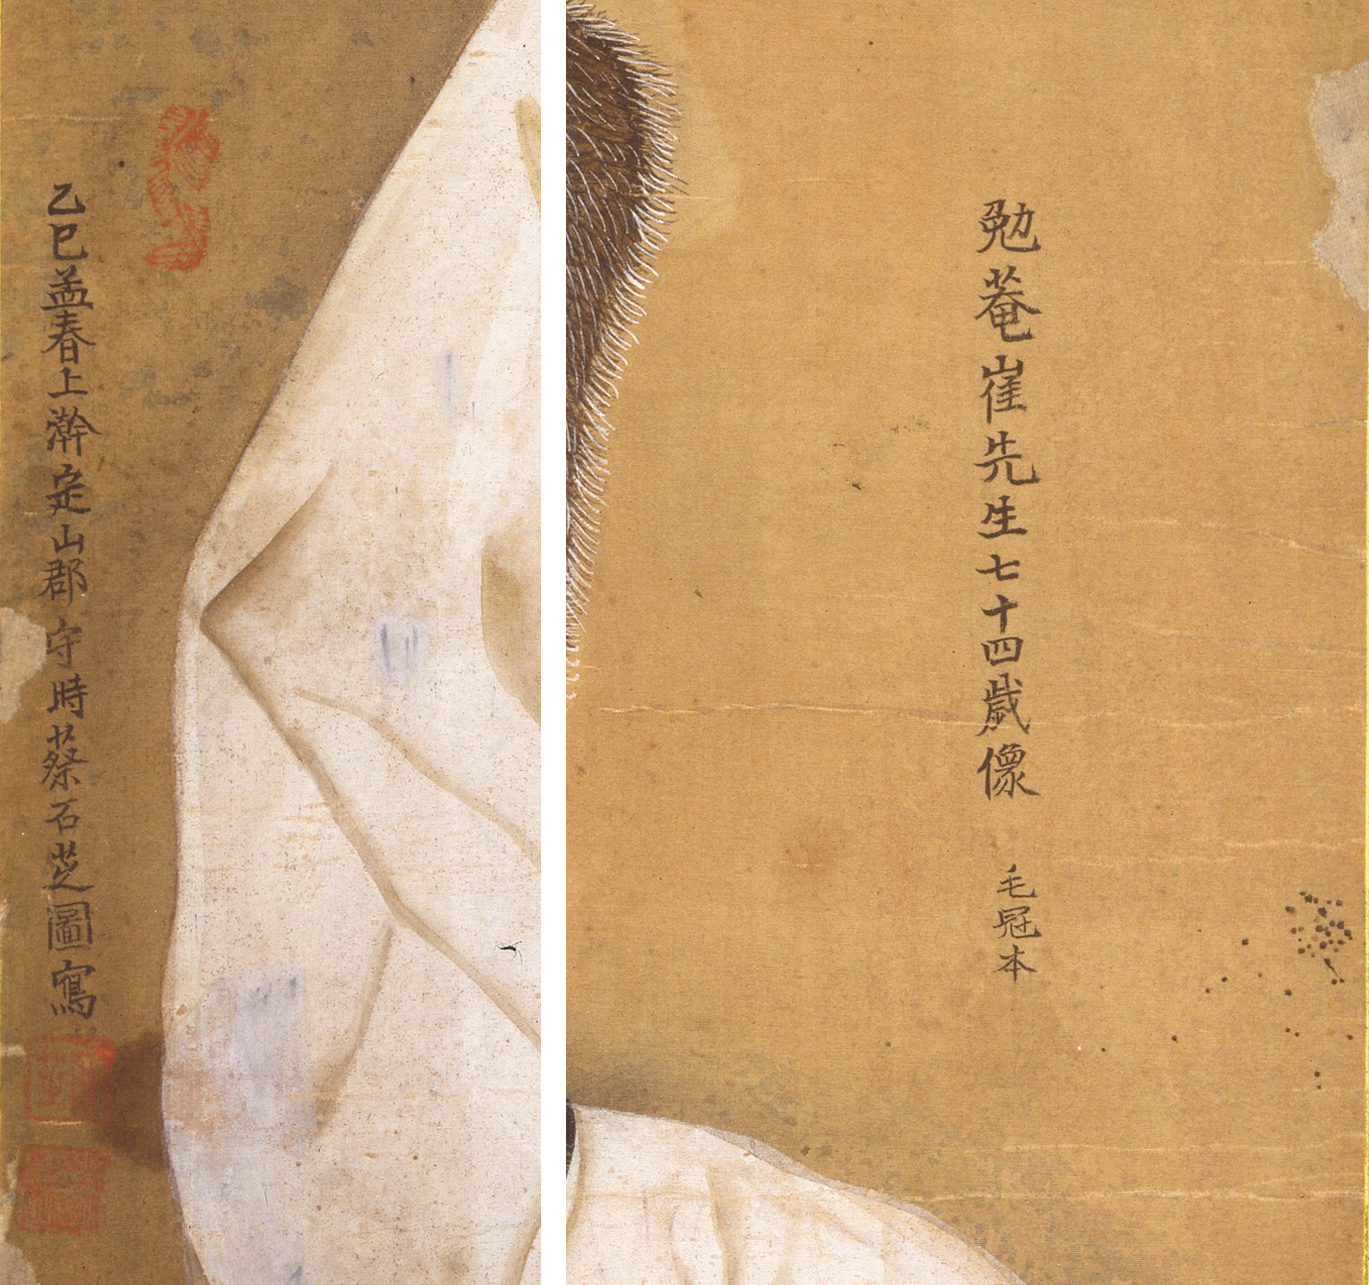 勉菴崔先生七十四歲像
毛冠本
乙巳孟春上澣定山郡守時蔡石芝圖寫